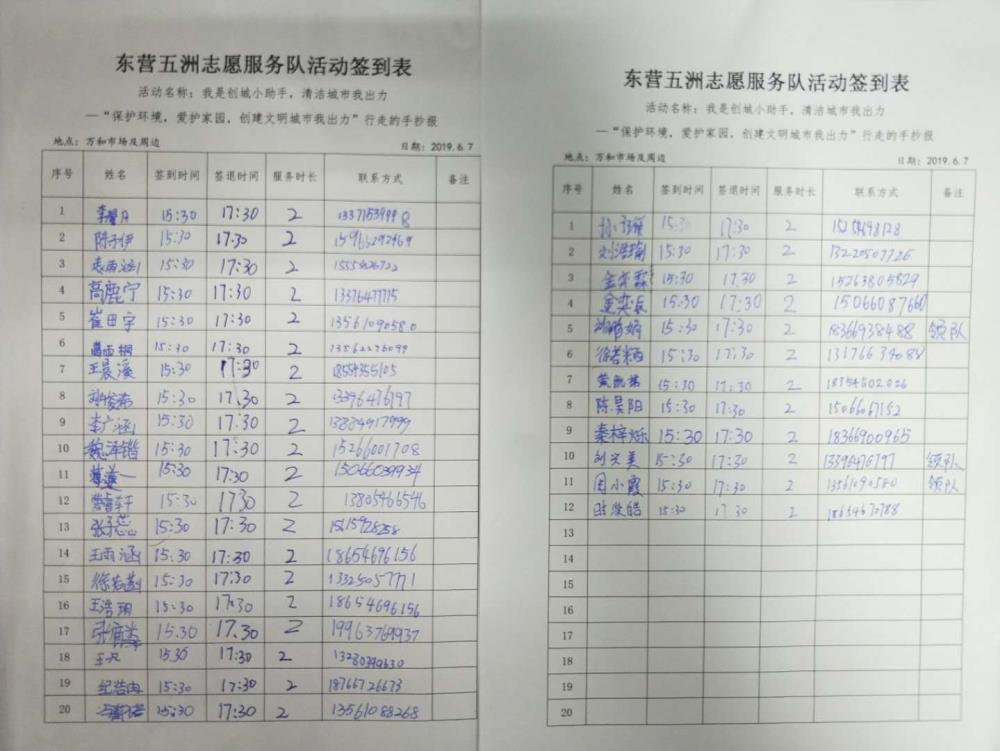 东营五洲志愿服务队活动签到表
活动名称：我是创城小助手，清洁城市我出力
—“保护环境，爱护家园，创建文明城市我出力”行走的手抄报
地点：万和市场及周边 日期：2019.6.7
序号 姓名 签到时间 签退时间 服务时长 联系方式 备注
1 15:30 17:30 2
2 陈子伊 15:30 17:30 2 15965292469
3 15:30 17:30 2
4 高鹿宁 15:30 17:30 2 13376477715
5 崔田宇 15:30 17:30 2 13561090580
6 葛雨桐 15:30 17:30 2 13562276099
7 王晨溪 15:30 17:30 2 18554355105
8 刘俊希 15:30 17:30 2 13396476797
9 李广涵 15:30 17:30 2
10 魏泽锴 15:30 17:30 2 15266001708
11 15:30 17:30 2 15066039934
12 15:30 17:30 2 13805466546
13 张子蕊 15:30 17:30 2
14 王雨涵 15:30 17:30 2 18654696156
15 徐若菡 15:30 17:30 2 13325057771
16 王浩玥 15:30 17:30 2 18654696156
17 15:30 17:30 2 19963769937
18 15:30 17:30 2
19 纪浩冉 15:30 17:30 2 18766726673
20 15:30 17:30 2 13561088268
东营五洲志愿服务队活动签到表
活动名称：我是创城小助手，清洁城市我出力
—“保护环境，爱护家园，创建文明城市我出力”行走的手抄报
地点：万和市场及周边 日期：2019.6.7
序号 姓名 签到时间 签退时间 服务时长 联系方式 备注
1 15:30 17:30 2
2 刘浩瑜 15:30 17:30 2 13220507726
3 金奕霖 15:30 17:30 2 15263805529
4 金奕辰 15:30 17:30 2 15066087660
5 15:30 17:30 2 18366938488 领队
6 15:30 17:30 2
7 15:30 17:30 2 18354602026
8 陈昊阳 15:30 17:30 2 15066067152
9 秦梓烁 15:30 17:30 2 18366900965
10 刘兴美 15:30 17:30 2 13396476797 领队
11 田小霞 15:30 17:30 2 13561090580 领队
12 15:30 17:30 2 18654670788
13
14
15
16
17
18
19
20